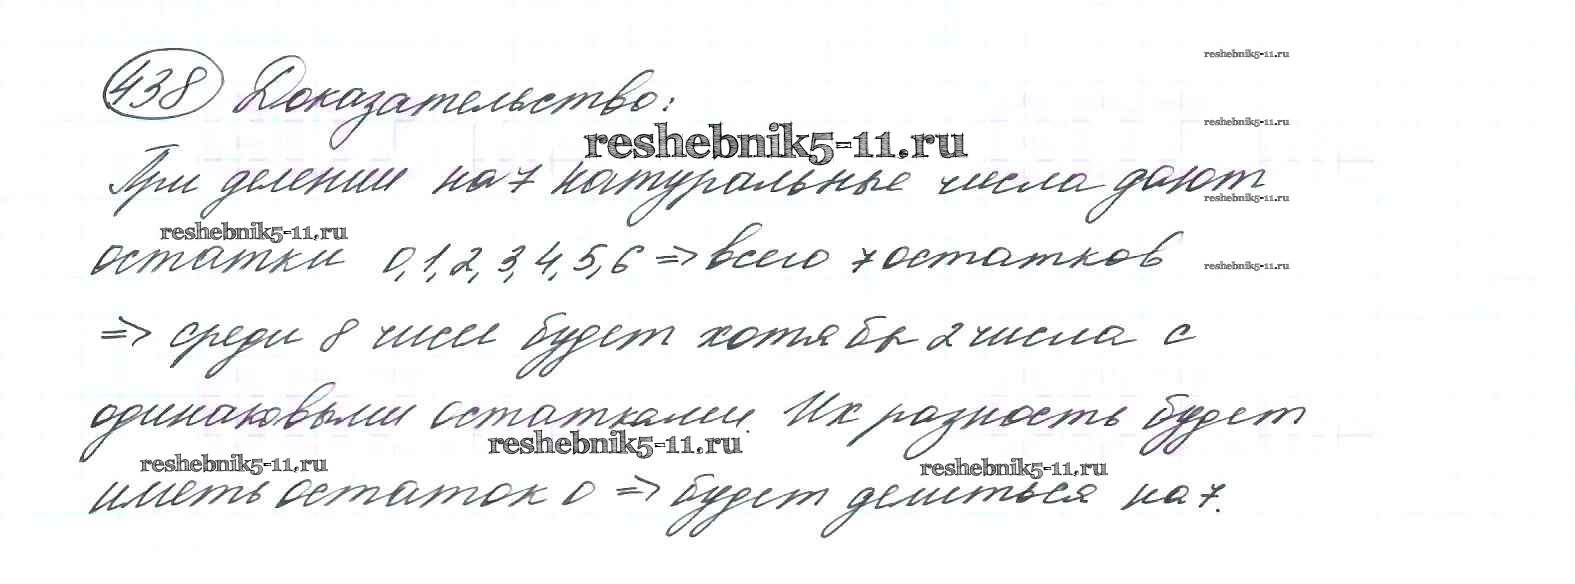 reshebnik5-11.ru
438 Доказательство:
reshebnik5-11.ru
reshebnik5-11.ru
При делении на 7 натуральные числа дают
reshebnik5-11.ru
reshebnik5-11.ru
остатки 0, 1, 2, 3, 4, 5, 6 => всего 7 остатков
reshebnik5-11.ru
=> среди 8 чисел будет хотя бы 2 числа с
одинаковыми остатками. Их разность будет
reshebnik5-11.ru
reshebnik5-11.ru
reshebnik5-11.ru
иметь остаток 0 => будет делиться на 7.